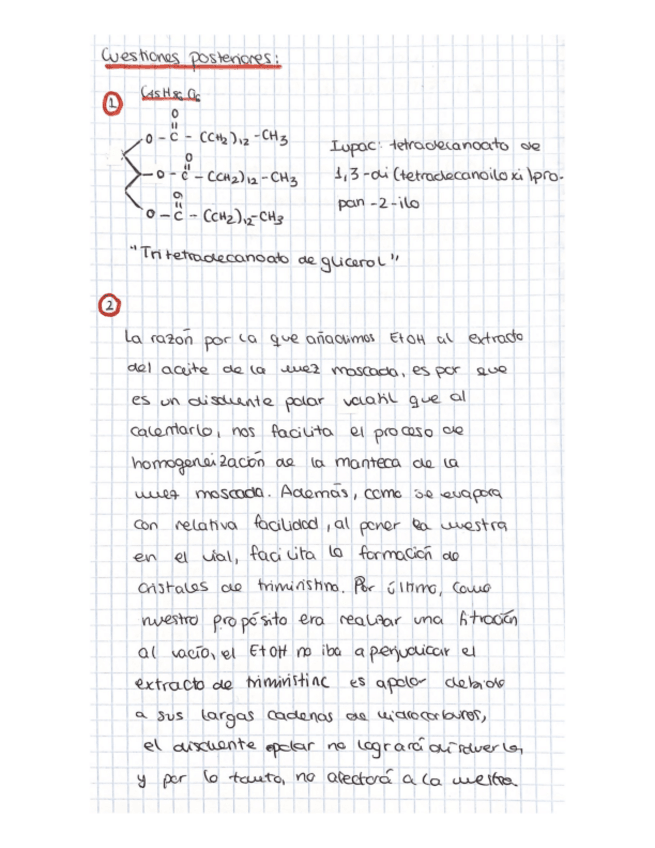 Cuestiones posteriores:
① C45H86O6
O
O - C - (CH2)12 - CH3
O
O - C - (CH2)12 - CH3
O
O - C - (CH2)12 - CH3
Iupac: tetradecanoato de
1,3-di(tetradecanoiloxi)pro-
pan-2-ilo
"Tritetradecanoato de glicerol"
②
La razón por la que añadimos EtOH al extracto
del aceite de la nuez moscada, es por que
es un disolvente polar volátil que al
calentarlo, nos facilita el proceso de
homogeneización de la manteca de la
nuez moscada. Además, como se evapora
con relativa facilidad, al poner la muestra
en el vial, facilita la formación de
cristales de trimiristina. Por último, como
nuestro propósito era realizar una filtración
al vacío, el EtOH no iba a perjudicar el
extracto de trimiristina es apolar debido
a sus largas cadenas de hidrocarburos,
el disolvente polar no logrará disolverla,
y por lo tanto, no afectará a la muestra.